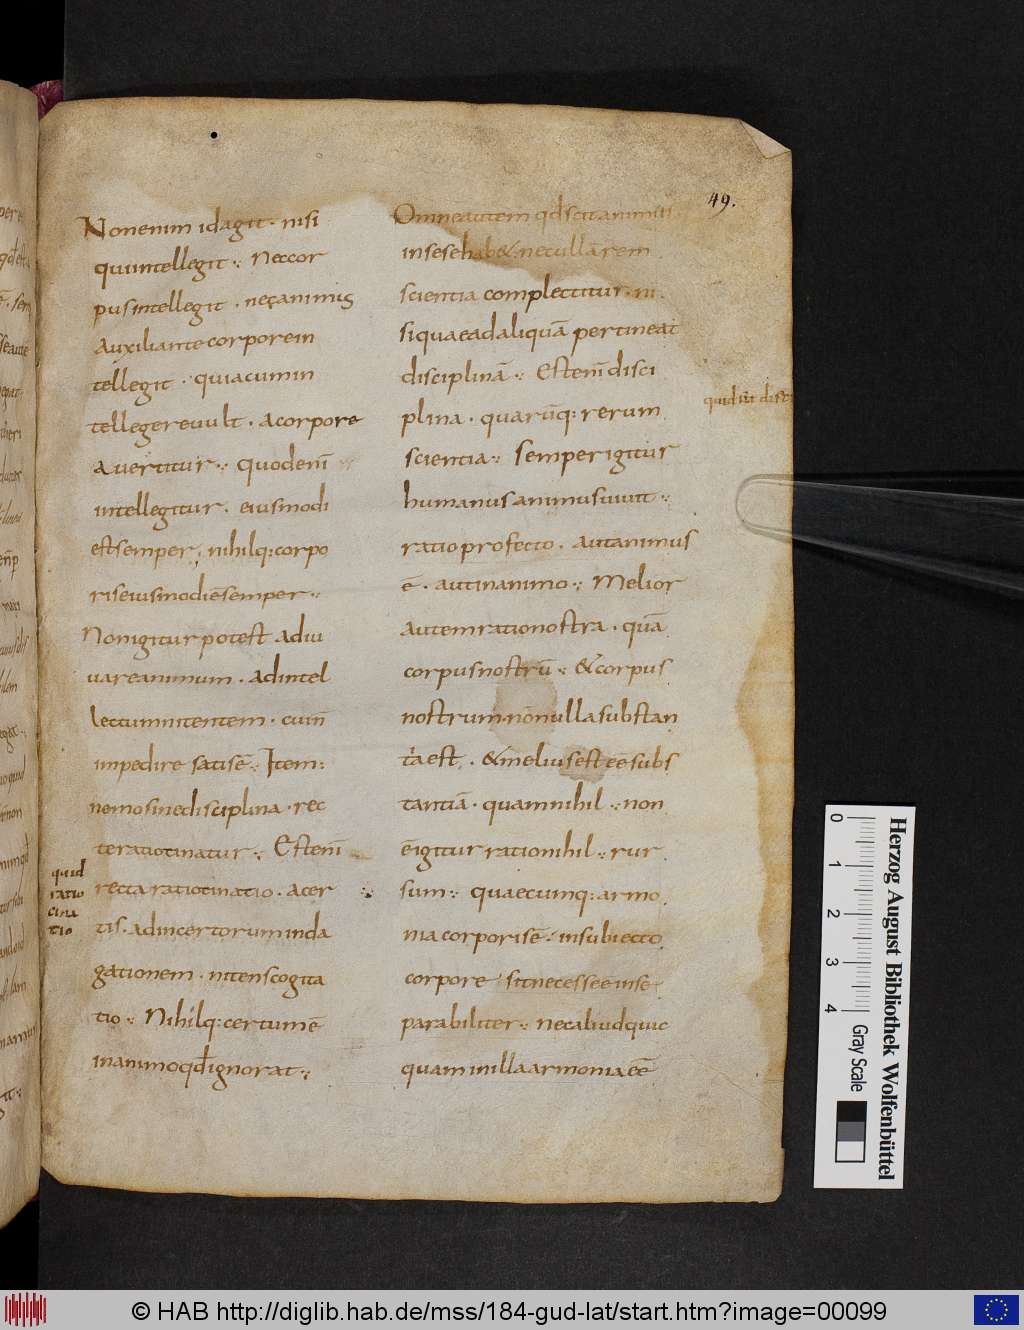 49.
Nonenim idagit · nisi
quiintellegit ·, Neccor
pusintellegit · neçanimus
auxiliante corporein
tellegit · quiacumin
tellegereuult · acorpore
auertitur ·, quodenī
intellegitur · eiusmodi
estsemper, nihilq; corpo
riseiusmodiēsemper ·,
Nonigitur potest adiu
uareanimum · adintel
lectumnitentem · cuiñ
impedire satisē ·, Item:
nemosinedisciplina · rec
teratiotinatur ·, Estenī
recta ratiotinatio · acer
tis · adincertoruminda
gationem · nitenscogita
tio ·, Nihilq; certumē
inanimoqđignorat ·,
quid
ratio
cina
tio
Omneautem qđscitanimus
insesehab& · necullārem
scientia complectitur · ni
siquaeadaliquā pertineat
disciplinā ·, Estenī disci
plina · quarūq; rerum
scientia ·, semper igitur
humanusanimusuiuit ·,
ratioprofecto · autanimus
ē · autinanimo ·, Melior
autemrationostra · quā
corpusnostrū ·, &corpus
nostrum · nonnullasubstan
tiaest · &meliusesteēsubs
tantiā · quamnihil ·, non
ēigiturrationihil ·, rur
sum ·, quaecumq; armo
niacorporisē · insubiecto
corpore sitnecesseēinse
parabiliter ·, necaliudquic
quaminillaarmoniaeē
© HAB http://diglib.hab.de/mss/184-gud-lat/start.htm?image=00099
Herzog August Bibliothek Wolfenbüttel
0 1 2 3 4
Gray Scale